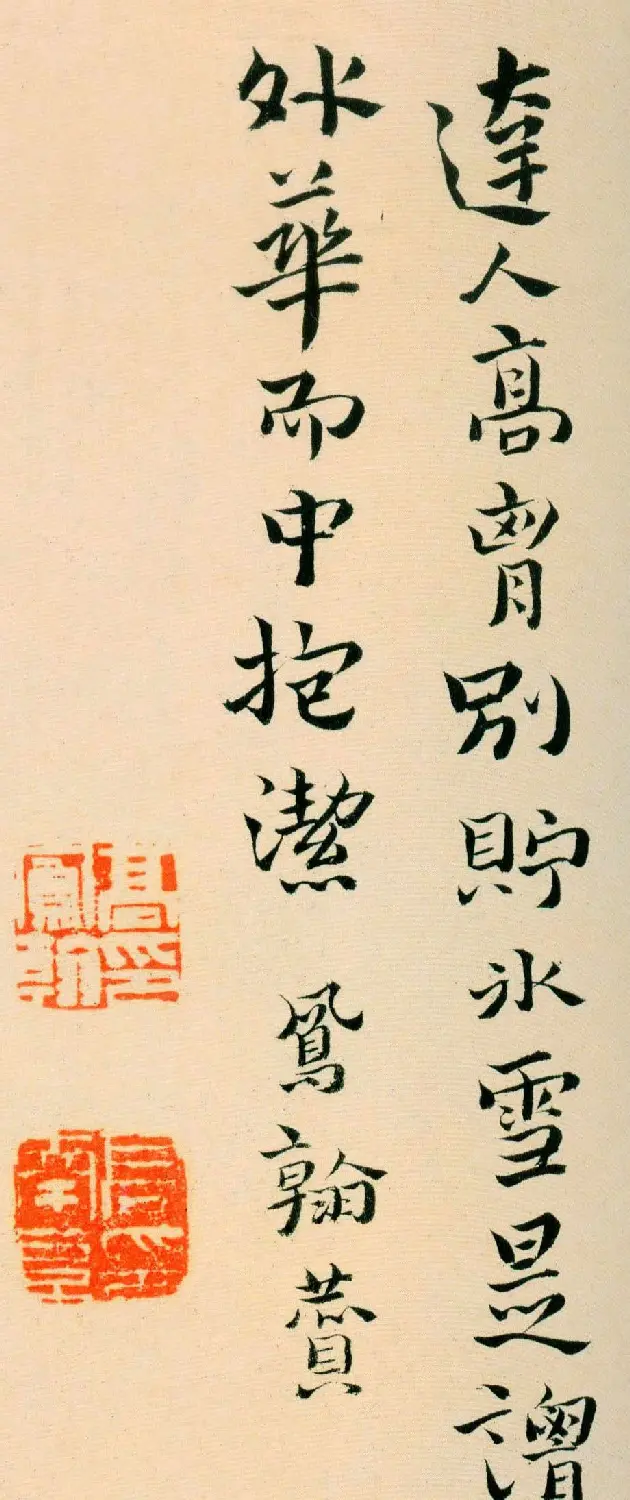 達人高胷別貯氷雪是謂
外華而中抱潔 鳳翰贊
高鳳翰印